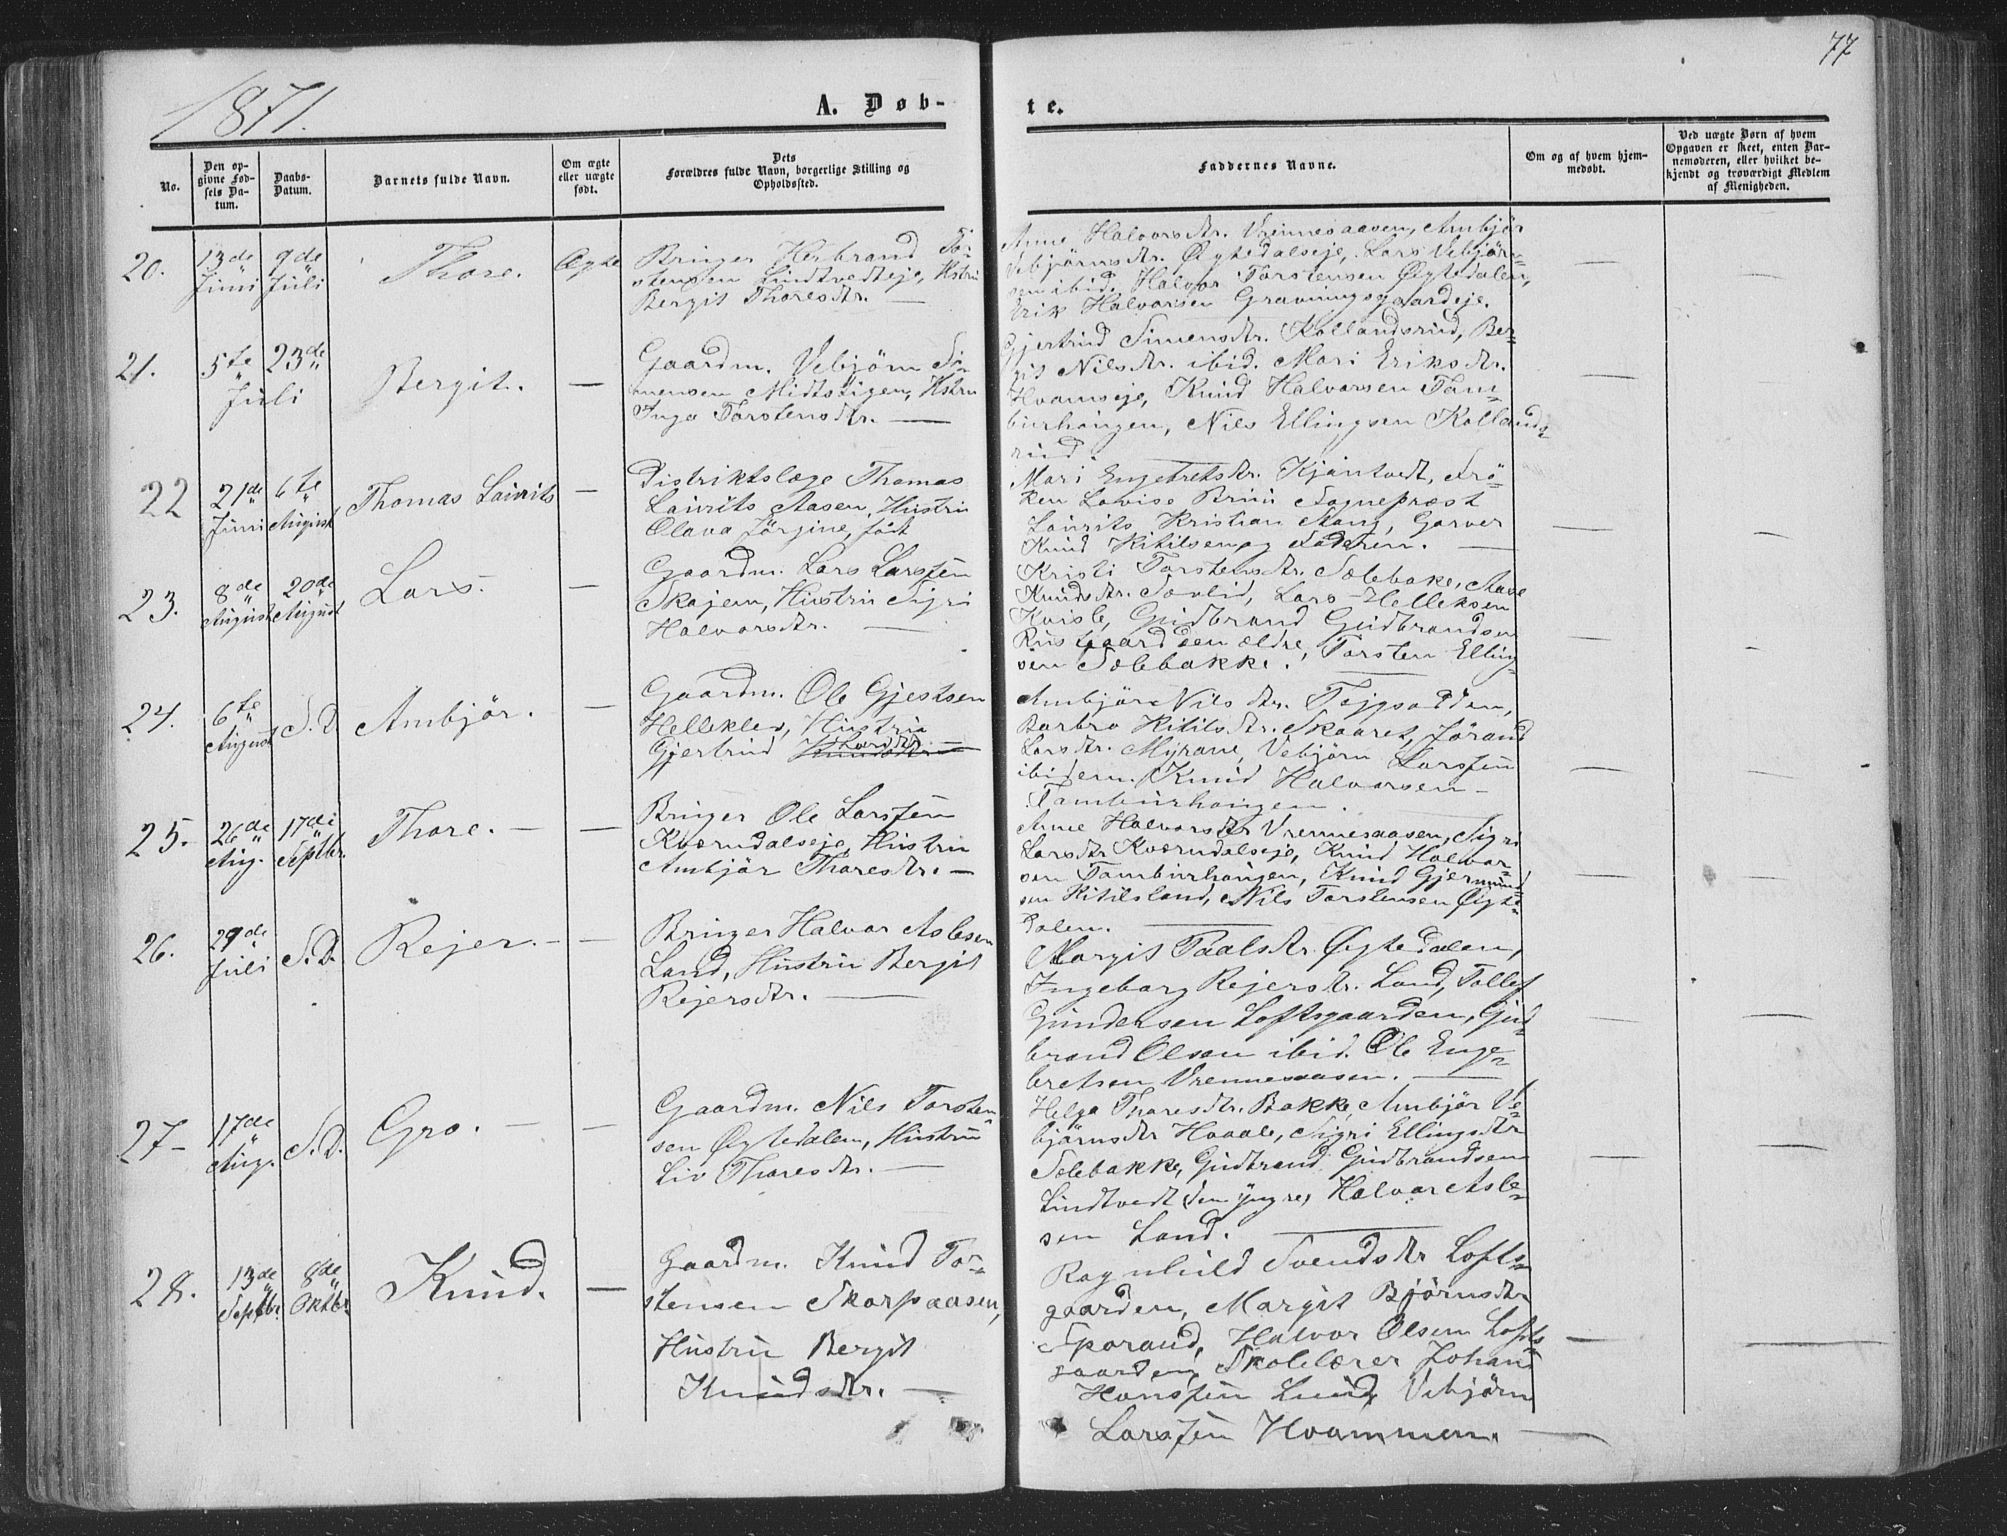 77
1871.
A. Døb-
te.
No.
Den op-
givne Fød-
sels Da-
tum.
Daabs-
Datum.
Barnets fulde Navn.
Om ægte
eller uægte
født.
Dets
Forældres fulde Navn, borgerlige Stilling og
Opholdssted.
Faddernes Navne.
Om og af hvem hjem-
medøbt.
Ved uægte Børn af hvem
Opgaven er skeet, enten Bar-
nemoderen, eller hvilket be-
kjendt og troværdigt Medlem
af Menigheden.
20.
13de
Juni
9de
Juli
Thore.
Ægte
Bruger Herbrand Tor-
stensen Lindtvedteje, Hstru
Bergit Thoresdtr. —
Anne Halvorsdtr. Vrennesaasen, Ambjør
Vebjørnsdtr. Øgtedalseje, Lars Vebjørn-
sen ibid. Halvor Torstensen Øgtedalen,
Erik Halvorsen Gravningsgaardeje.
21.
5te
Juli
23de
Bergit. —
Gaardm. Vebjørn Si-
mensen Midtstigen, Hstru
Inga Torstensdtr. —
Gjertrud Simensdtr. Kollandsrud, Ber-
git Nilsdtr. ibid. Mari Eriksdtr.
Hvamseje, Knud Halvorsen Tam-
burhaugen, Nils Ellingsen Kollands-
rud
22
21de
Juni
6te
August
Thomas Laurits —
Distriktslæge Thomas
Laurits Aasen, Hustru
Olava Jørgine, født
Mari Engebretsdtr. Kjøntvedt, Frø-
ken Lovise Bruu Sognepræst
Laurits Kristian Stang, Garver
Knud Kitilsen og Faderen. —
23.
8de
August
20de
August
Lars. —
Gaardm. Lars Larssen
Skajem, Hustru Sigri
Halvorsdtr. —
Kristi Torstensdtr. Sølebake, Aase
Knudsdtr. Sørlid, Lars Helleksen
Kvisle, Gudbrand Gudbrandsen
Rustgaard den ældre, Torsten Elling-
sen Sølebakke.
24.
6te
August
S.D.
Ambjør. —
Gaardm. Ole Gjestsen
Helleklev, Hustru
Gjertrud Knudsdtr. —
Ambjør Nilsdtr.
Barbro Kitilsdtr. Skaaret, Jørand
Larsdtr. Myrane, Vebjørn Larssen
ibidem. Knud Halvorsen
Tamburhaugen.
25.
26de
Aug.
17de
Septbr.
Thore. — —
Bruger Ole Larssen
Kværndalseje, Hustru
Ambjør Thoresdtr. —
Anne Halvorsdtr Vrennesaasen, Sigri
Larsdtr Kværndalseje, Knud Halvor-
sen Tamburhaugen, Knud Gjermund-
sen Kitilsland, Nils Torstensen Øgte-
dalen.
26.
29de
Juli
S.D.
Rejer. — —
Bruger Halvor Aslesen
Land, Hustru Bergit
Rejersdtr. —
Margit Paalsdtr. Øgtedalen,
Ingeborg Rejersdtr. Land, Tollef
Gundersen Loftsgaarden, Gud-
brand Olsen ibid. Ole Enge-
bretsen Vrennesaasen. —
27 —
17de
Aug.
S.D.
Gro. — —
Gaardm. Nils Torsten-
sen Øgtedalen, Hustru
Liv Thoresdtr. —
Helga Thoresdtr. Bakke, Ambjør Ve-
bjørnsdtr Haaale, Sigri Ellingsdtr
Sølebakke, Gudbrand Gudbrandsen
Lindtvedt den yngre, Halvor Asle-
sen Land.
28.
13de
Septbr.
8de
Oktbr
Knud. —
Gaardm. Knud Tor-
stensen Skorpaasen,
Hustru Bergit
Knudsdtr. —
Ragnhild Svendsdtr Lofts-
gaarden, Margit Bjørnsdtr
Sporand, Halvor Olsen Lofts-
gaarden, Skolelærer Johan
Hanssen Lund, Vebjørn
Larssen Hvammen. —